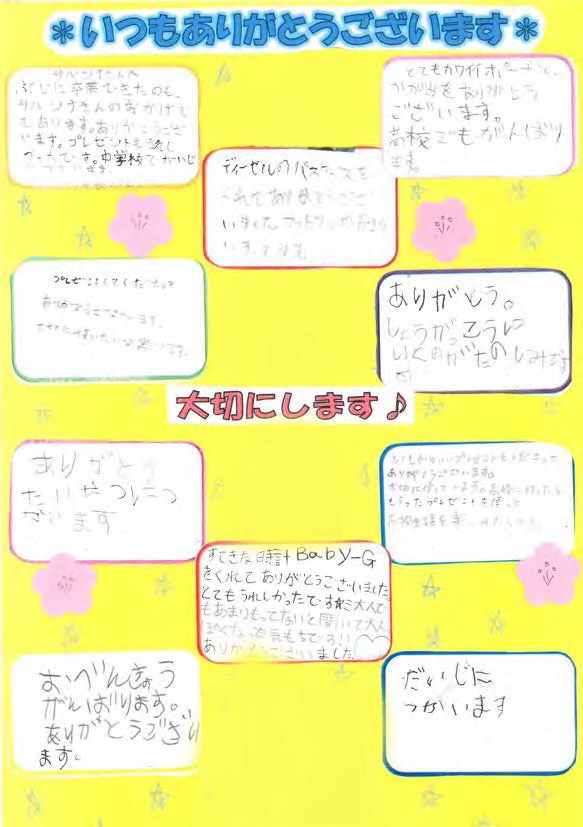 ＊いつもありがとうございます＊
サルシナさんへ
ぶじに卒業できたのも、
サルシナさんのおかげで
もあります。ありがとうござ
います。プレゼントも
です。中学校で
います。
とてもカワイイポーチと、
かがみをありがとう
ございます。
高校でもがんばり
ます。
ディーゼルのパスケースを
くれてありがとうござ
いました
プレゼントしてくださって
ありがとうございます。
大切に使いたいな思います。
ありがとう。
しょうがっこうに
いくのがたのしみです
大切にします♪
ありがとう
ございます
とてもかわいいプレゼントをくださって
ありがとうございます。
大切に使っています。高校に行ったら
もらったプレゼントを使って
高校生活を
すてきな時計Baby-G
をくれてありがとうございました。
とてもうれしかったです☆ミ大人で
もあまりもってないと聞いて大人
ぽくなった気もちです!!
ありがとうございました。
おべんきょう
がんばります。
ありがとうござい
ます。
だいじに
つかいます